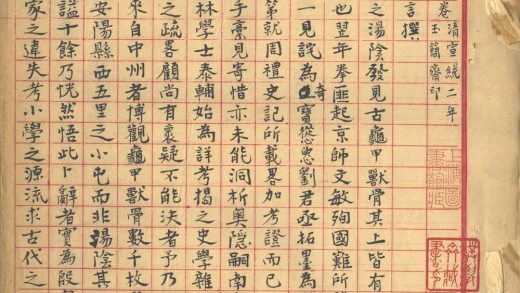 卷 清宣統二年
玉簡齋印
言撰
之湯陰發見古龜甲獸骨其上皆有
也翌年拳匪起京師文敏殉國難所
一見詫為奇寶慫恿劉君亟拓墨為
第就周禮史記所載畧加考證而已
手稾見寄惜亦未能洞析奧隱嗣南
林學士泰輔始為詳考揭之史學雜
之疏畧顧尚有裹疑不能決者予乃
來自中州者博觀龜甲獸骨數千枚
安陽縣西五里之小屯而非湯陰其
謚十餘乃恍然悟此卜辭者實為殷
家之違失考小學之源流求古代之
上海圖
書館藏